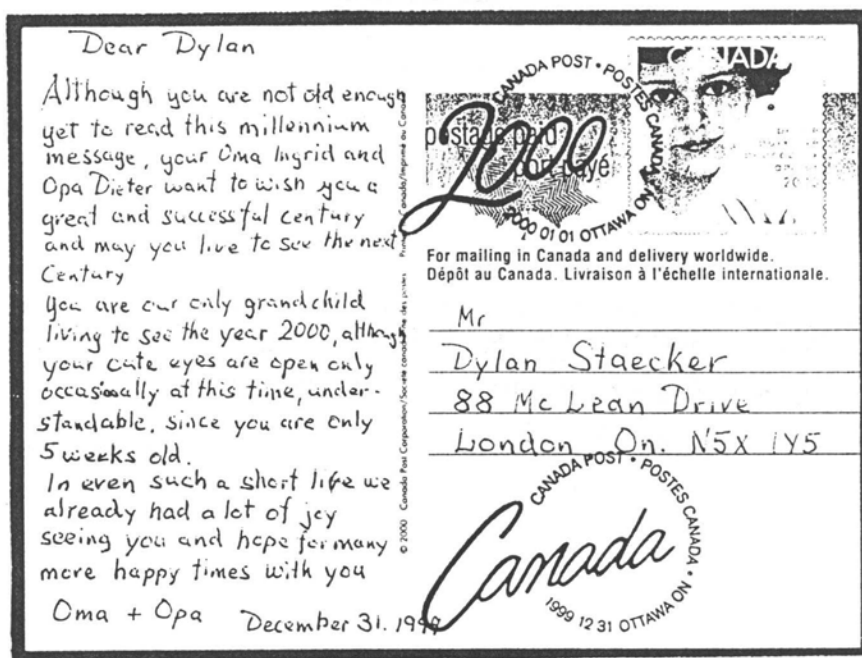 Dear Dylan
Although you are not old enough
yet to read this millennium
message, your Oma Ingrid and
Opa Dieter want to wish you a
great and successful century
and may you live to see the next
Century
You are our only grandchild
living to see the year 2000, although
your cute eyes are open only
occasionally at this time, under-
standable, since you are only
5 weeks old.
In even such a short life we
already had a lot of joy
seeing you and hope for many
more happy times with you
Oma + Opa December 31. 1999
© 2000 Canada Post Corporation/Société canadienne des postes Canada/Imprimé au Canada
CANADA POST • POSTES CANADA
2000
2000 01 01 OTTAWA ON
postage paid
port payé
CANADA
For mailing in Canada and delivery worldwide.
Dépôt au Canada. Livraison à l'échelle internationale.
Mr
Dylan Staecker
88 McLean Drive
London On. N5X 1Y5
CANADA POST • POSTES CANADA •
Canada
1999 12 31 OTTAWA ON